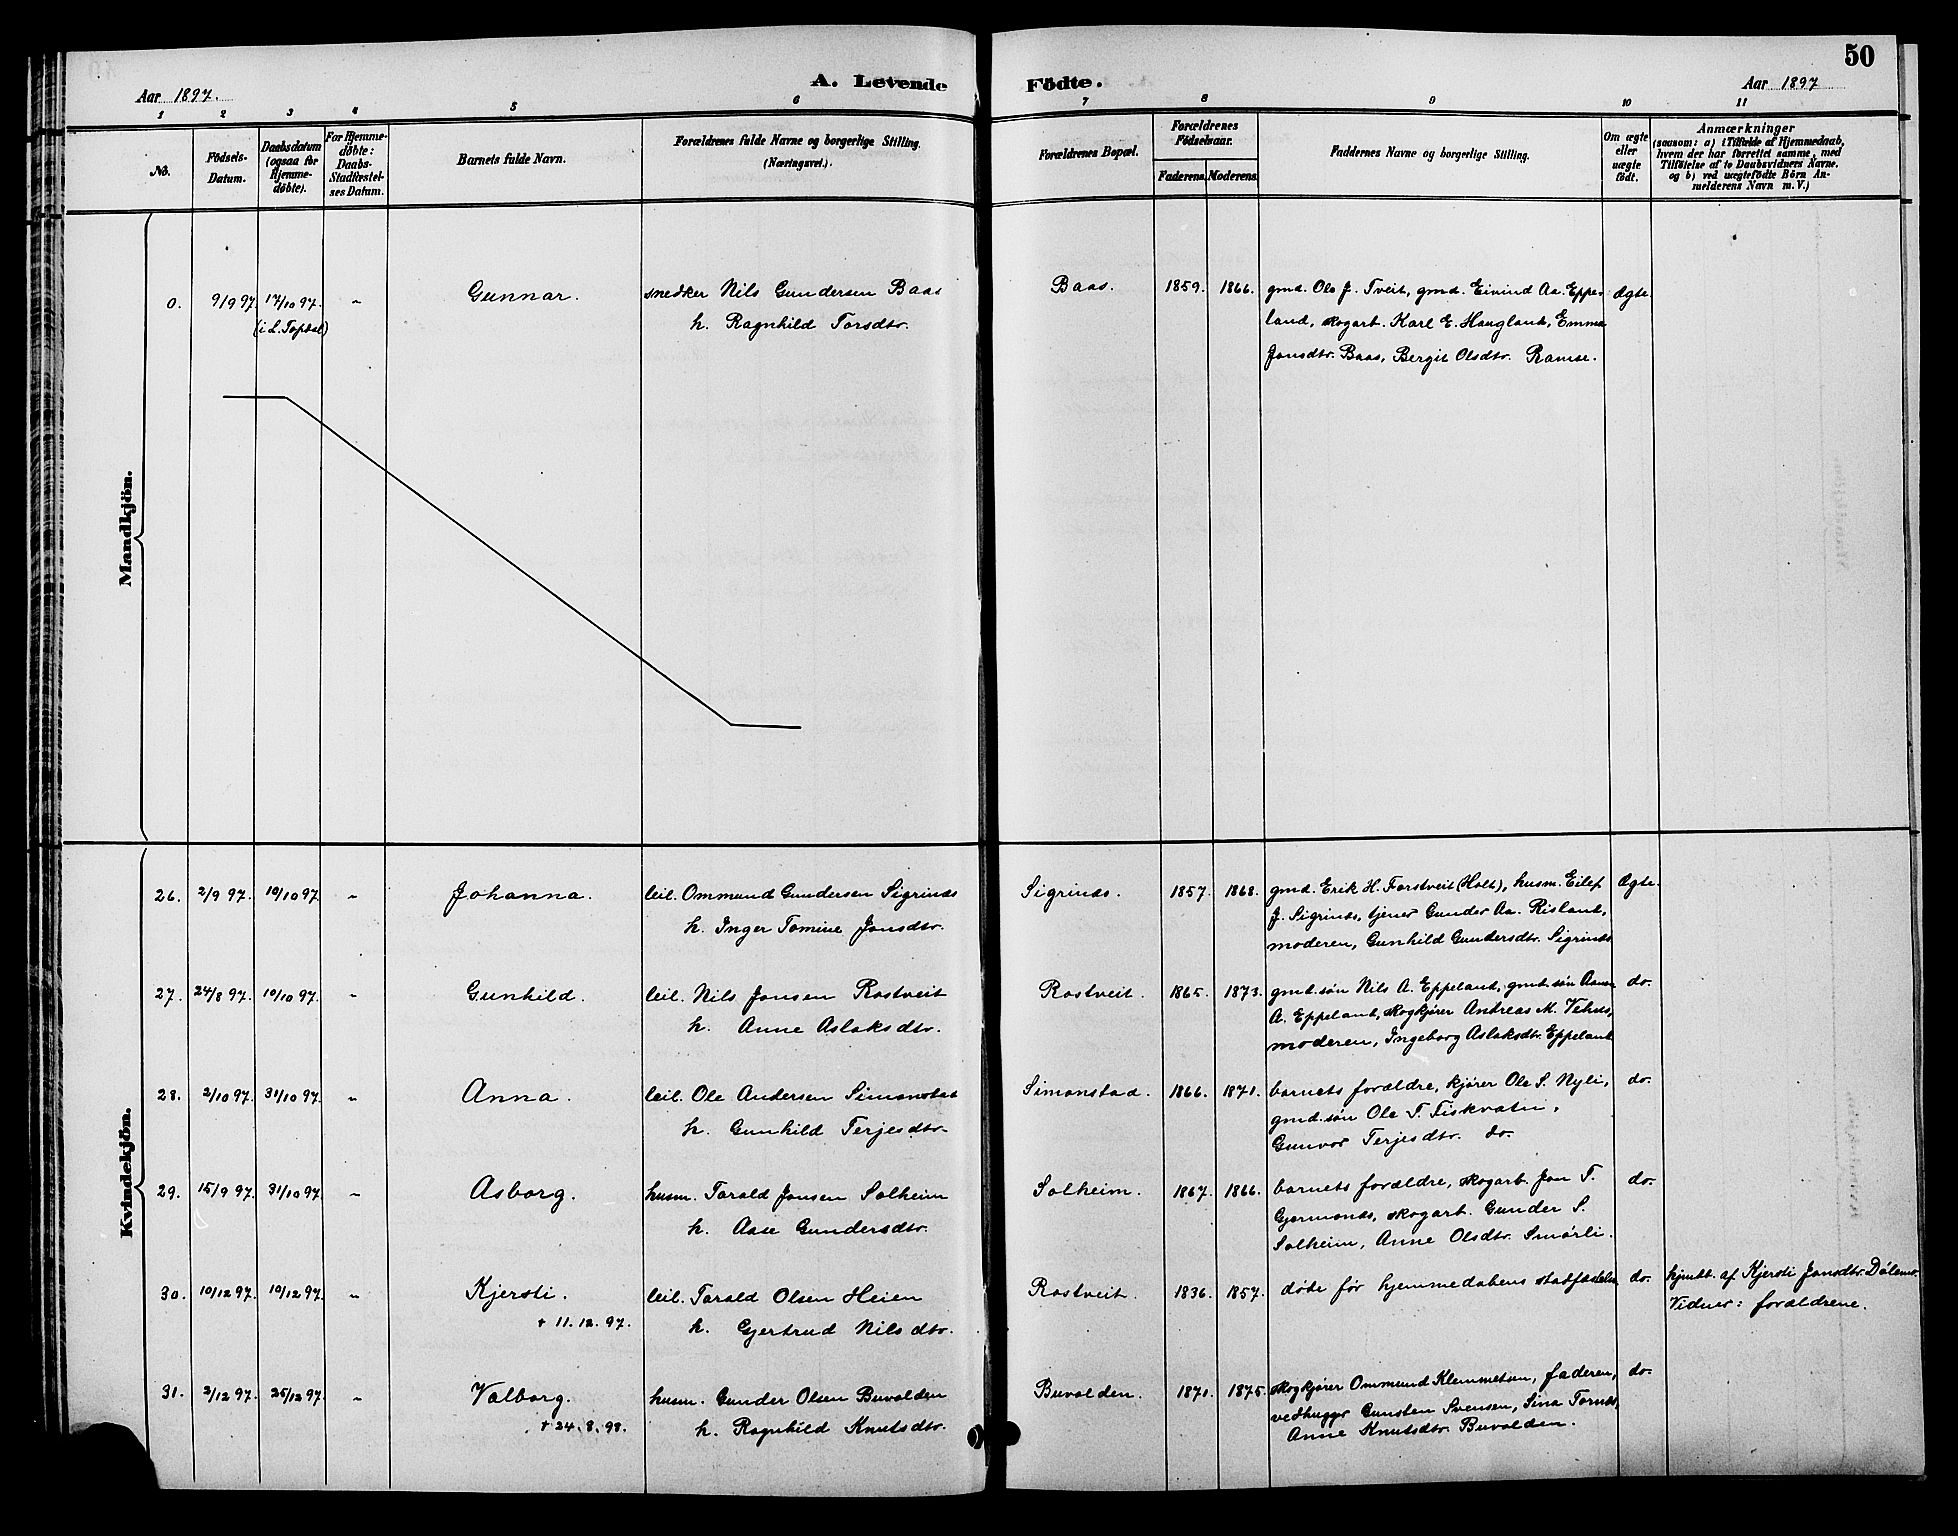 50
A. Levende Födte.
Aar 1897.
Aar 1897
1 2 3 4 5 6 7 8 9 10 11
No.
Födsels-
Datum.
Daabsdatum
(ogsaa for
Hjemme-
døbte).
For Hjemme-
døbte:
Daabs-
Stadfæstel-
ses Datum.
Barnets fulde Navn.
Forældrenes fulde Navne og borgerlige Stilling.
(Næringsvei.)
Forældrenes Bopæl.
Forældrenes
Födselsaar.
Faderens. Moderens.
Faddernes Navne og borgerlige Stilling.
Om ægte
eller
uægte
født.
Anmærkninger
(saasom: a) i Tilfælde af Hjemmedaab,
hvem der har forrettet samme, med
Tilføielse af to Daabsvidners Navne.
og b) ved uægtefødte Börn An-
melderens Navn m. V.)
Mandkjön.
0. 9/9 97. 17/10 97. „ Gunnar. snedker Nils Gundersen Baas Baas. 1859. 1866. gmd. Ole J. Tveit, gmd. Eivind Aa. Eppe- Ægte.
(i L. Topdal) h. Ragnhild Torsdtr. land, skogarb. Karl E. Haugland, Emma
Jonsdtr. Baas, Bergit Olsdtr. Ramse.
Kvindekjön.
26. 2/9 97. 10/10 97. „ Johanna. leil. Ommund Gundersen Sigrinds Sigrinds. 1857. 1868. gmd. Erik H. Forstveit (Holt), husm. Eilef Ægte.
h. Inger Tomine Jonsdtr. J. Sigrinds, tjener Gunder Aa. Risland,
moderen, Gunhild Gundersdtr. Sigrinds
27. 24/8 97. 10/10 97. „ Gunhild. leil. Nils Jonsen Rostveit Rostveit. 1865. 1873. gmd. søn Nils A. Eppeland, gmd. søn Aanon do.
h. Anne Aslaksdtr. A. Eppeland, skogkjører Andreas M. Vehus,
moderen, Ingeborg Aslaksdtr. Eppeland
28. 2/10 97. 31/10 97. „ Anna. leil. Ole Andersen Simonstad Simonstad. 1866. 1871. barnets forældre, kjører Ole S. Nyli, do.
h. Gunhild Terjesdtr. gmd. søn Ole T. Fiskvatn,
Gunvor Terjesdtr. do.
29. 15/9 97. 31/10 97. „ Asborg. husm. Tarald Jonsen Solheim Solheim. 1867. 1866. barnets forældre, skogarb. Jon T. do.
h. Aase Gundersdtr. Gjermonds, skogarb. Gunder S.
Solheim, Anne Olsdtr. Smörli.
30. 10/12 97. 10/12 97. „ Kjersti. leil. Tarald Olsen Heien Rostveit. 1836. 1857. døde før hjemmedabens stadfæstelse do. hjmdt. af Kjersti Jonsdtr. Dölemo.
† 11.12.97. h. Gjertrud Nilsdtr. Vidner: forældrene.
31. 2/12 97. 25/12 97. „ Valborg. husm. Gunder Olsen Buvolden Buvolden. 1871. 1875. skogkjører Ommund Klemmetsen, faderen, do.
† 24.8.98. h. Ragnhild Knutsdtr. vedhugger Gunsten Svensen, Sina
Anne Knutsdtr. Buvolden.